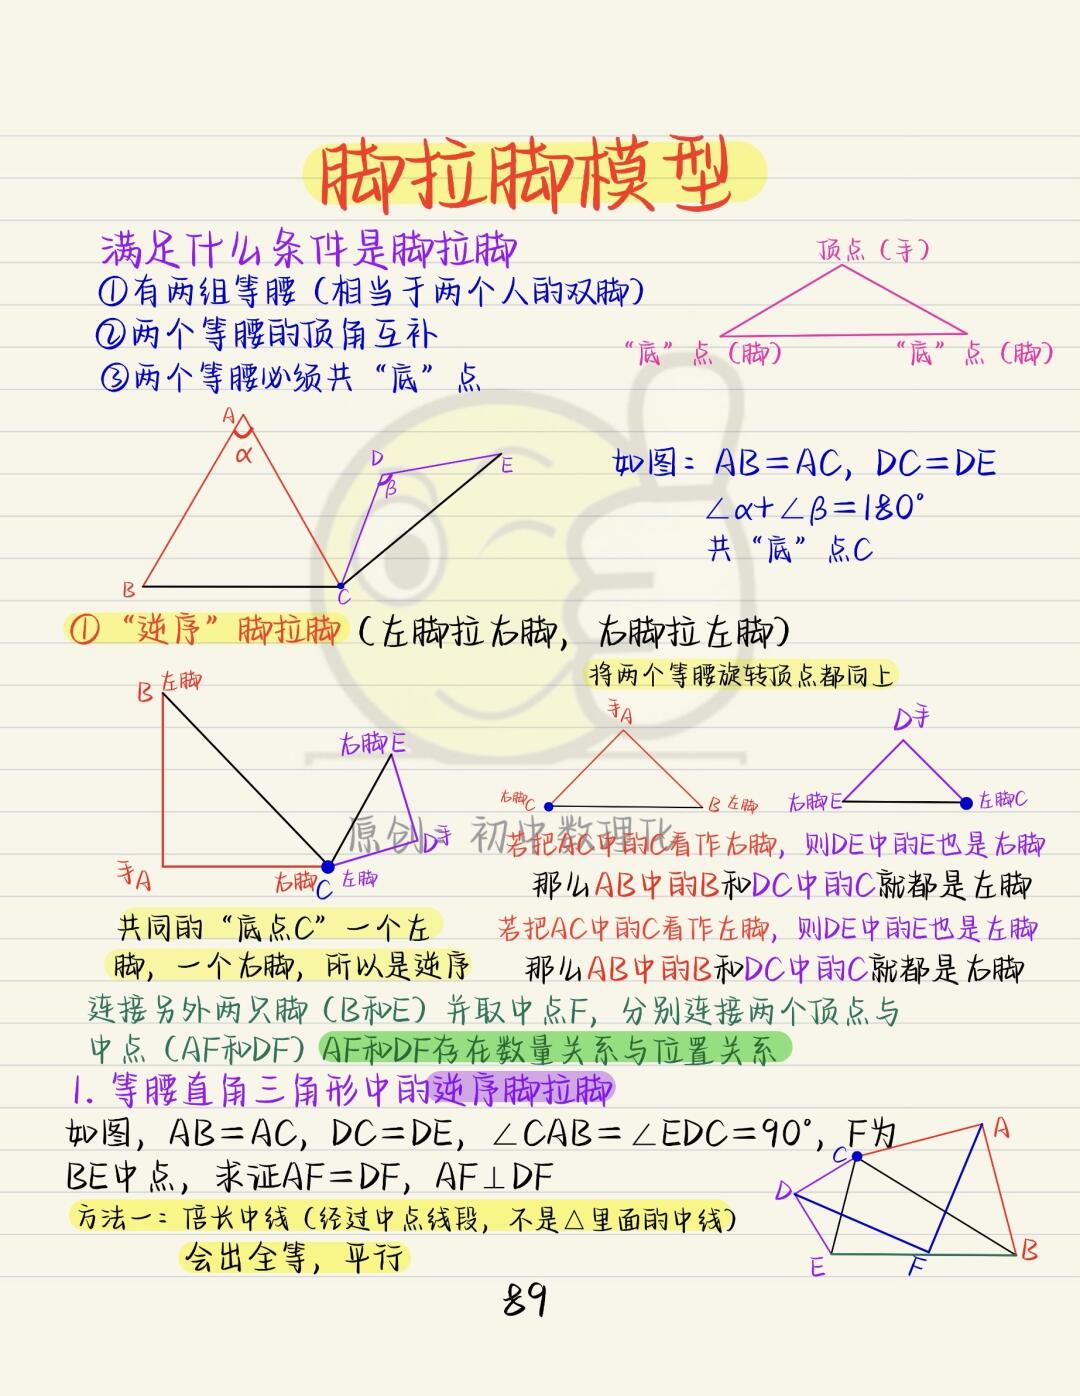 脚拉脚模型
满足什么条件是脚拉脚
①有两组等腰（相当于两个人的双脚）
②两个等腰的顶角互补
③两个等腰必须共“底”点
顶点（手）
“底”点（脚）
“底”点（脚）
A
α
D
β
E
B
C
如图：AB=AC，DC=DE
∠α+∠β=180°
共“底”点C
①“逆序”脚拉脚（左脚拉右脚，右脚拉左脚）
将两个等腰旋转顶点都向上
B左脚
右脚E
D手
手A
右脚C左脚
手A
右脚C
B左脚
D手
右脚E
左脚C
原创：初中数理化
若把AC中的C看作右脚，则DE中的E也是右脚
那么AB中的B和DC中的C就都是左脚
共同的“底点C”一个左
脚，一个右脚，所以是逆序
若把AC中的C看作左脚，则DE中的E也是左脚
那么AB中的B和DC中的C就都是右脚
连接另外两只脚（B和E）并取中点F，分别连接两个顶点与
中点（AF和DF）AF和DF存在数量关系与位置关系
1. 等腰直角三角形中的逆序脚拉脚
如图，AB=AC，DC=DE，∠CAB=∠EDC=90°，F为
BE中点，求证AF=DF，AF⊥DF
方法一：倍长中线（经过中点线段，不是△里面的中线）
会出全等，平行
A
C
D
E
F
B
89